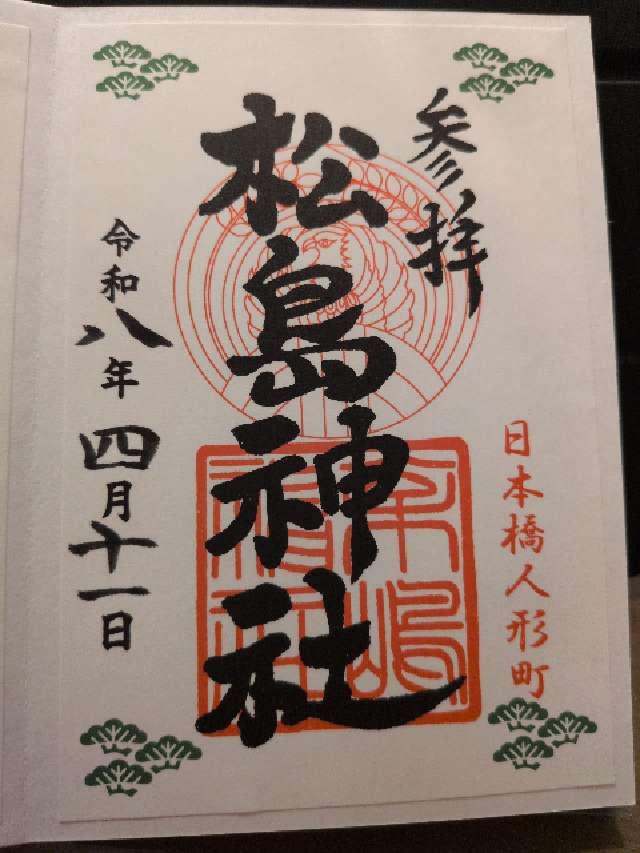 参拝
日本橋人形町
松島神社
令和八年四月十一日